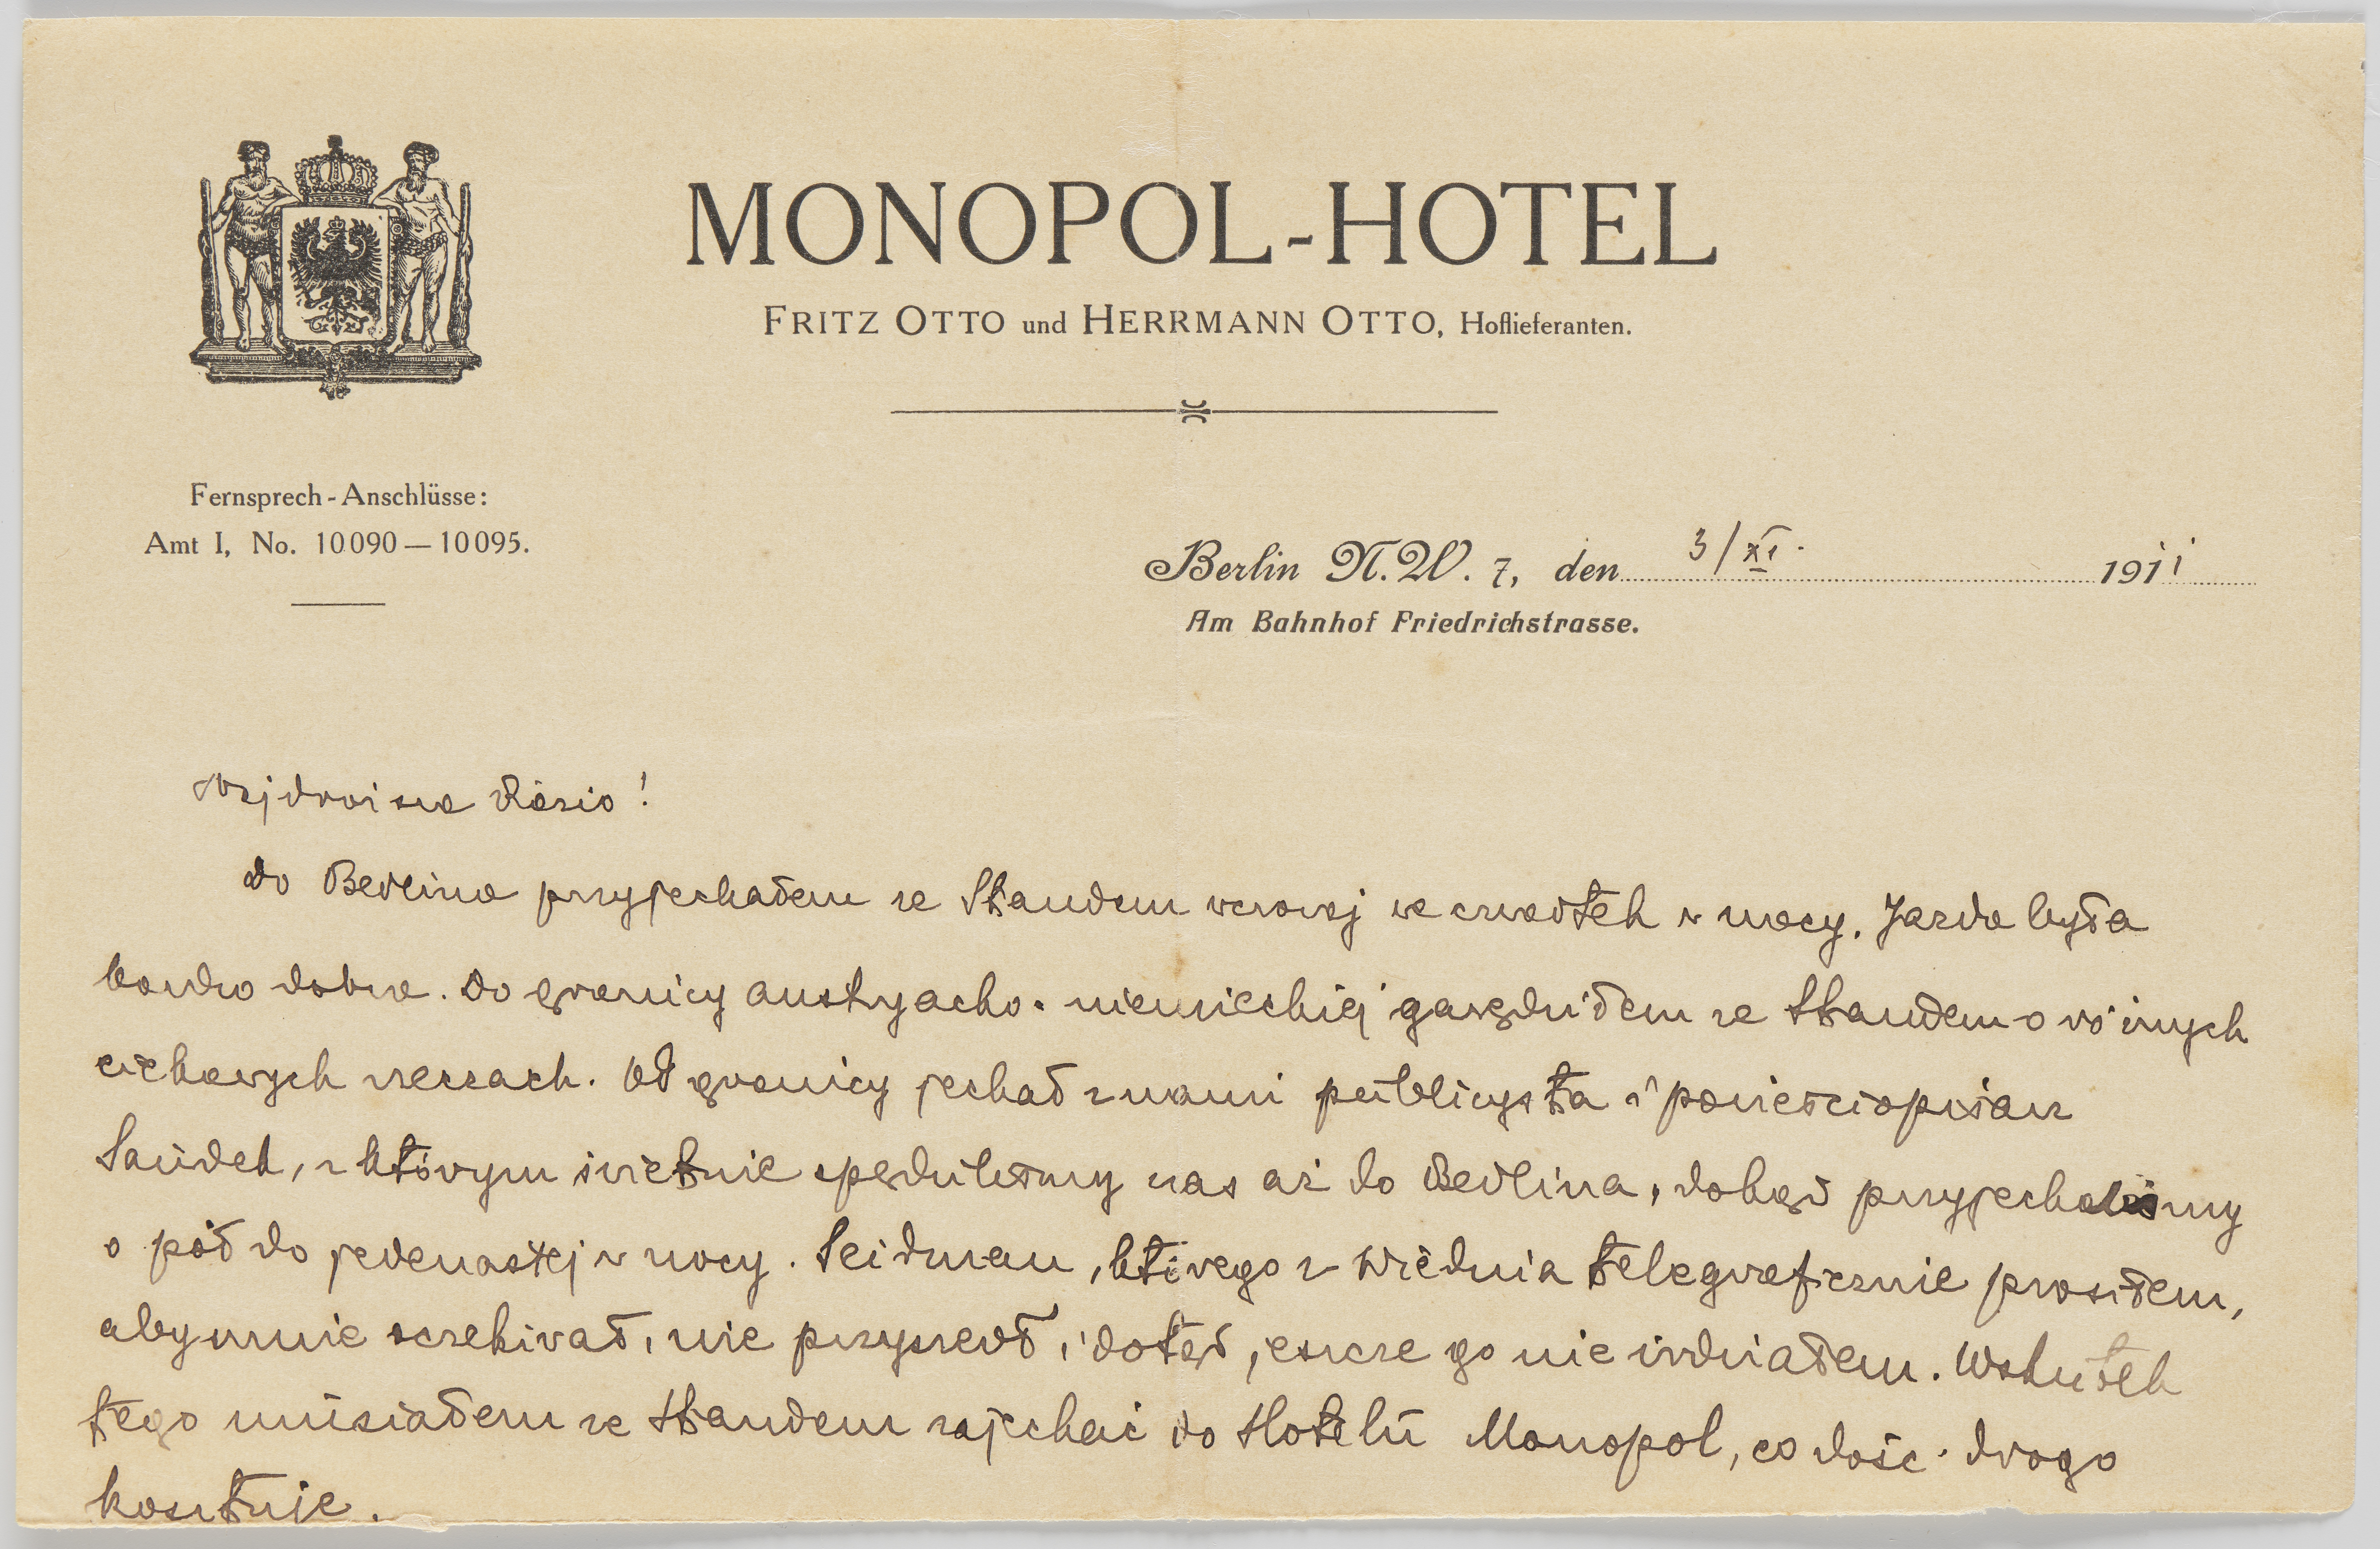 MONOPOL-HOTEL
FRITZ OTTO und HERRMANN OTTO, Hoflieferanten.
Fernsprech-Anschlüsse:
Amt I, No. 10090—10095.
Berlin N.W. 7, den 3/XI. 1911
Am Bahnhof Friedrichstrasse.
Najdroższa Rózio!
Do Berlina przyjechałem ze Staudem wczoraj we czwartek w nocy. Jazda była
bardzo dobra. Do granicy austryacko-niemieckiej gawędziłem ze Staudem o różnych
ciekawych rzeczach. Od granicy jechał z nami publicysta i powieściopisarz
Saudek, z którym świetnie spędziliśmy czas aż do Berlina, dokąd przyjechaliśmy
o pół do jedenastej w nocy. Seidman, którego z Wiednia telegraficznie prosiłem,
aby mnie oczekiwał, nie przyszedł, i dotąd jeszcze go nie widziałem. Wskutek
tego musiałem ze Staudem zajechać do Hotelu Monopol, co dość drogo
kosztuje.